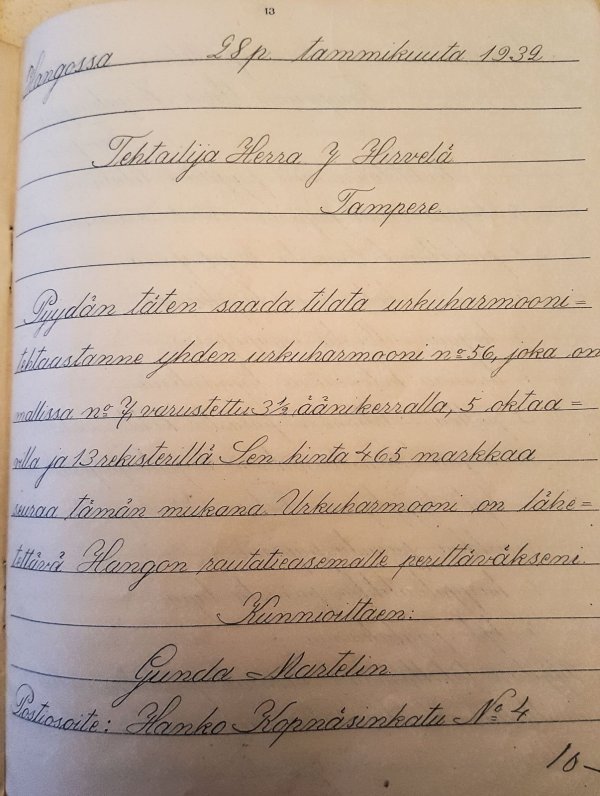 13
Hangossa 28 p. tammikuuta 1932
Tehtailija Herra J Hirvelä
Tampere.
Pyydän täten saada tilata urkuharmooni=
tehtaastanne yhden urkuharmooni nº 56, joka on
mallissa nº 7, varustettu 3½ äänikerralla, 5 oktaa=
villa ja 13 rekisterillä. Sen hinta 465 markkaa
seuraa tämän mukana. Urkuharmooni on lähe=
tettävä Hangon rautatieasemalle perittäväkseni.
Kunnioittaen:
Gunda Martelin.
Postiosoite: Hanko Kopnäsinkatu Nº 4
10-